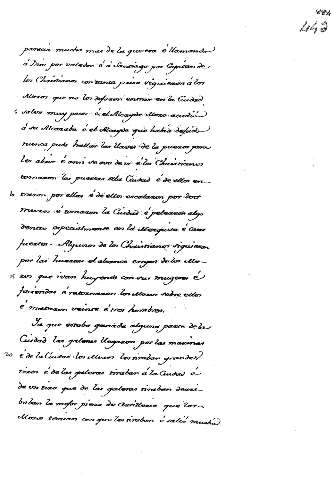 parecia mucha mas de la que era é llamando
á Dios por valedor é á Santiago por Capitan de
los Christianos con tanta priesa siguieron á los
Moros que no los dexaron entrar en la Ciudad
5 salvo muy pocos é el Alcayde Moro acudió
á su Alcazaba é el Alcayde que habia de
nunca pudo hallar las llaves de la puerta para
los abrir é ansi se ovo de ir é los Christianos
tomaron las puertas de la Ciudad é de ellos en-
10 traron por ellas é de ellos escalaron por dos
muros é tomaron la Ciudad é pelearon algo
dentro especialmente en la Mezquita é casas
fuertes. Algunos de los Christianos siguieron
por las huertas el alcance empos de los Mo-
15 ros que ivan huyendo con sus mugeres é
é retornaron los Moros sobre ellos
é mataron veinte é tres hombres.
Ya que estaba ganada alguna parte de la
Ciudad las galeras llegaron por las marinas
20 é de la Ciudad los Moros les tiraban grandes
tiros é de las galeras tiraban á la Ciudad é
de un tiro que de las galeras tiraban derri-
baban la mejor pieza de Artilleria que los
Moros tenian con que les tiraban é salió mucha